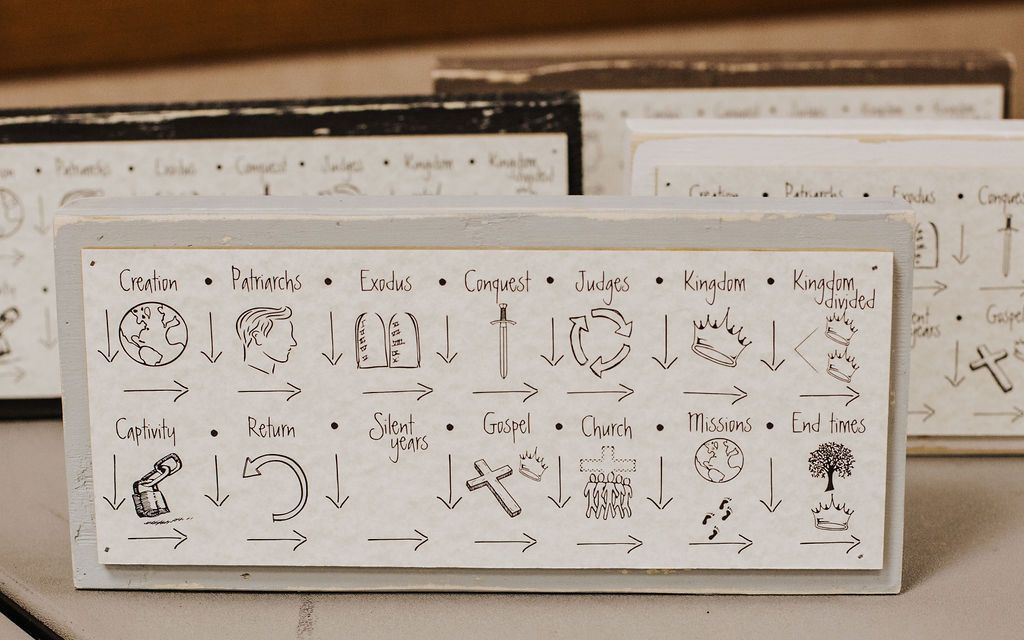 Patriarchs • Exodus • Conquest • Judges • Kingdom • Kingdom
divided
Creation • Patriarchs • Exodus • Conquest
Gospel
Creation • Patriarchs • Exodus • Conquest • Judges • Kingdom • Kingdom
divided
Captivity • Return • Silent • Gospel • Church • Missions • End times
years